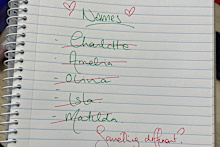 Names
- Charlotte
- Amelia
- Olivia
- Isla
- Matilda
Something different?